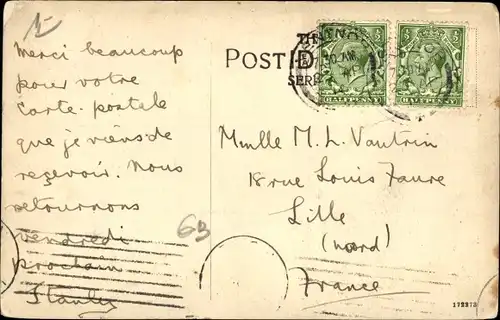 Merci beaucoup
pour votre
Carte postale
que je viens de
reçevoir. Nous
retournons
vendredi
prochain
Stanley
63
POST
HALFPENNY
HALFPENNY
Mmlle M. L. Vautrin
18 rue Louis Faure
Lille
(nord)
France